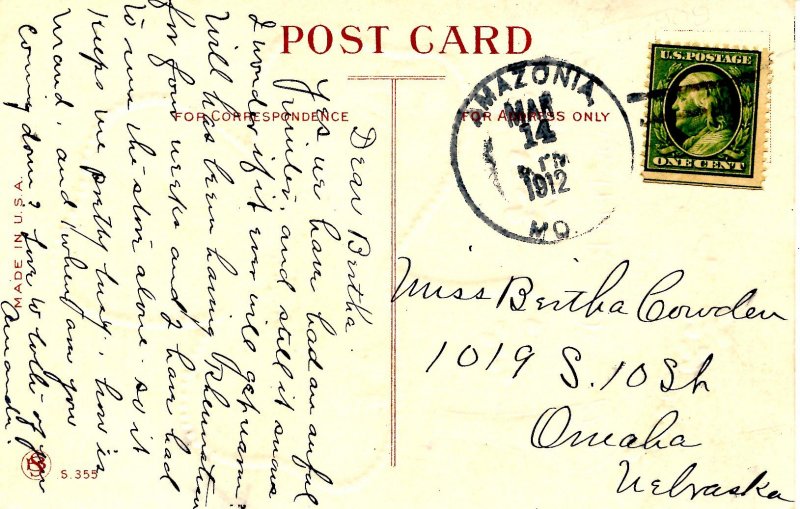 POST CARD
FOR CORRESPONDENCE
FOR ADDRESS ONLY
Dear Bertha.
Yes we have had an awful
winter, and still it snows
I wonder if it ever will get warm?
Will has been having Rheumatism
for four weeks and I have had
to run the store alone. so it
keeps me pretty busy. how is
Maud. and when are you
coming down? love to both of you
Amanda.
AMAZONIA,
MAR
14
1912
MO.
U.S. POSTAGE
ONE CENT
Miss Bertha Cowden
1019 S. 10 St
Omaha
Nebraska
MADE IN U.S.A.
S. 355